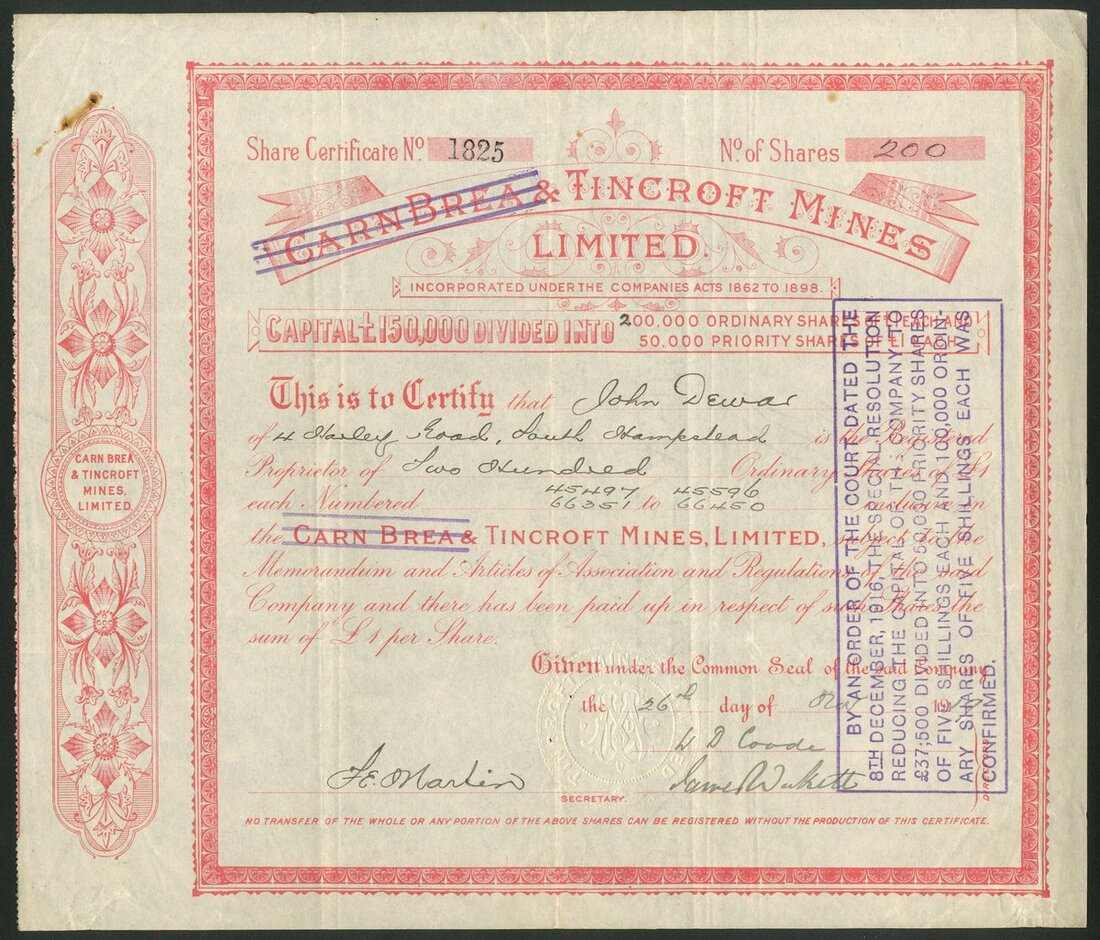 Share Certificate No. 1825
No. of Shares 200
CARN BREA & TINCROFT MINES
LIMITED.
INCORPORATED UNDER THE COMPANIES ACTS 1862 TO 1898.
CAPITAL £150,000 DIVIDED INTO 200.000 ORDINARY SHARES
50,000 PRIORITY SHARES OF £1 EACH
This is to Certify that John Dewar
of 4 Harley Road, South Hampstead is the Registered
Proprietor of Two Hundred Ordinary Shares of £1
45497 45596
each Numbered 66351 to 66450 inclusive in
the CARN BREA & TINCROFT MINES, LIMITED, subject to the
Memorandum and Articles of Association and Regulations of the said
Company and there has been paid up in respect of such Shares the
sum of £1 per Share.
Given under the Common Seal of the said Company
the 26th day of 19
W D Coode
F.E. Martin
SECRETARY.
NO TRANSFER OF THE WHOLE OR ANY PORTION OF THE ABOVE SHARES CAN BE REGISTERED WITHOUT THE PRODUCTION OF THIS CERTIFICATE.
CARN BREA
& TINCROFT
MINES,
LIMITED.
BY AN ORDER OF THE COURT DATED THE
8TH DECEMBER, 1916, THE SPECIAL RESOLUTION
REDUCING THE CAPITAL OF THE COMPANY TO
£37,500 DIVIDED INTO 50,000 PRIORITY SHARES
OF FIVE SHILLINGS EACH AND 100,000 ORDIN-
ARY SHARES OF FIVE SHILLINGS EACH WAS
CONFIRMED.